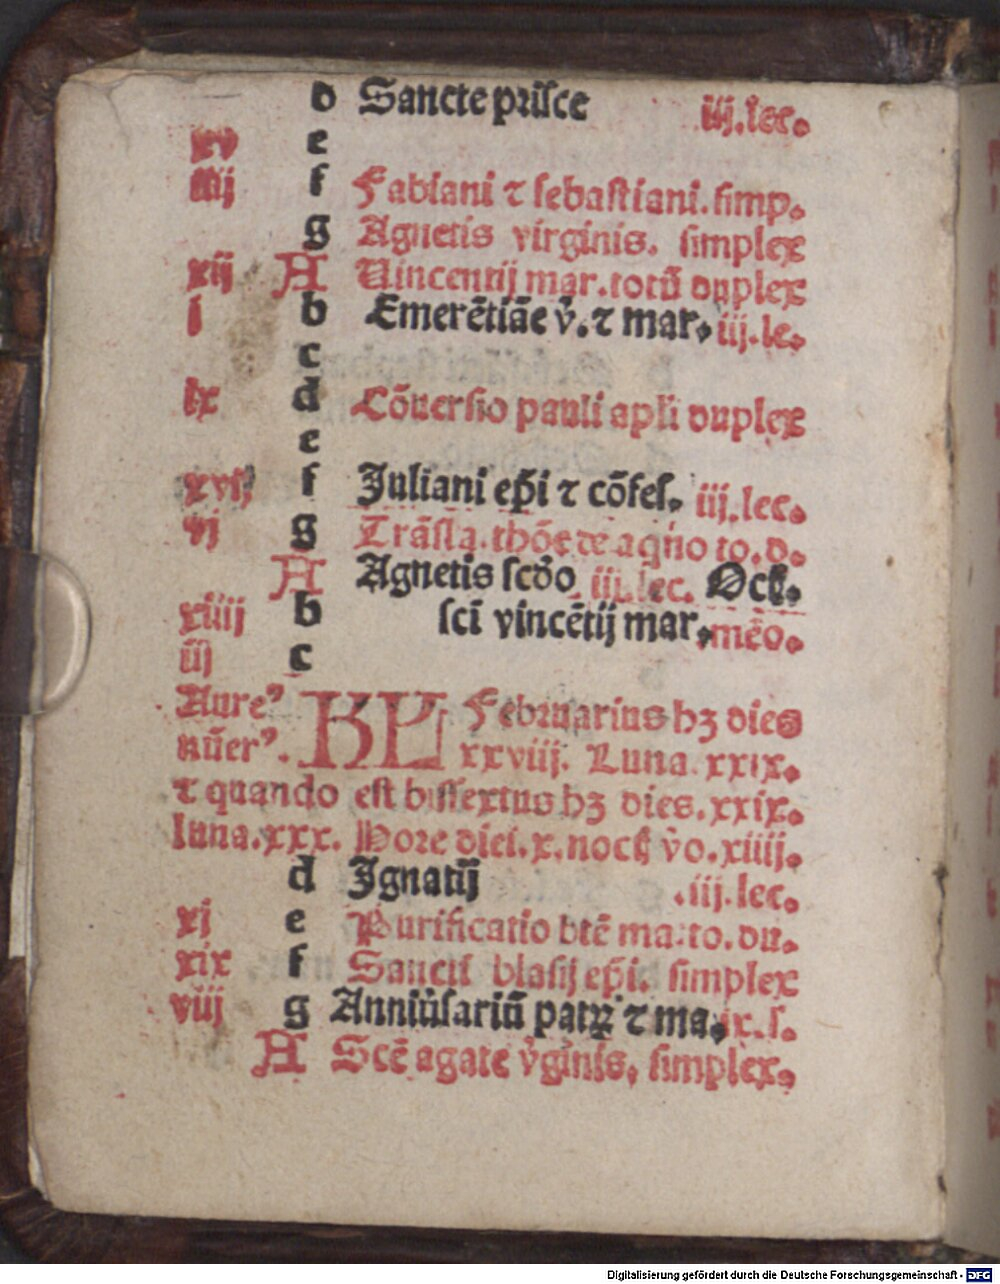 d Sancte prisce iij.lec.
xv e
iiij f Fabiani ⁊ sebastiani. simp.
g Agnetis virginis. simplex
xij A Vincentij mar. totū duplex
i b Emerētiāe v̄. ⁊ mar. iij.le.
c
ix d Cōuersio pauli apli duplex
e
xvij f Juliani ep̄i ⁊ cōfes. iij.lec.
vj g Trāsla. thōe de aq̄no to. d.
A Agnetis scdo iij.lec. Oct.
xiiij b sci vincētij mar. mēo.
iij c
Aure⁹ KL Februarius hꝫ dies
nūer⁹. xxviij. Luna. xxix.
⁊ quando est bissextus hꝫ dies. xxix.
luna. xxx. Hore diei. x. noct̄ vo. xiiij.
d Ignatij .iij.lec.
xj e Purificatio btē ma. to. du.
xix f Sancti blasij ep̄i. simplex
viij g Anniūsariū patrꝝ ⁊ ma. ix.l.
A Scē agate v̄ginis. simplex.
Digitalisierung gefördert durch die Deutsche Forschungsgemeinschaft - DFG